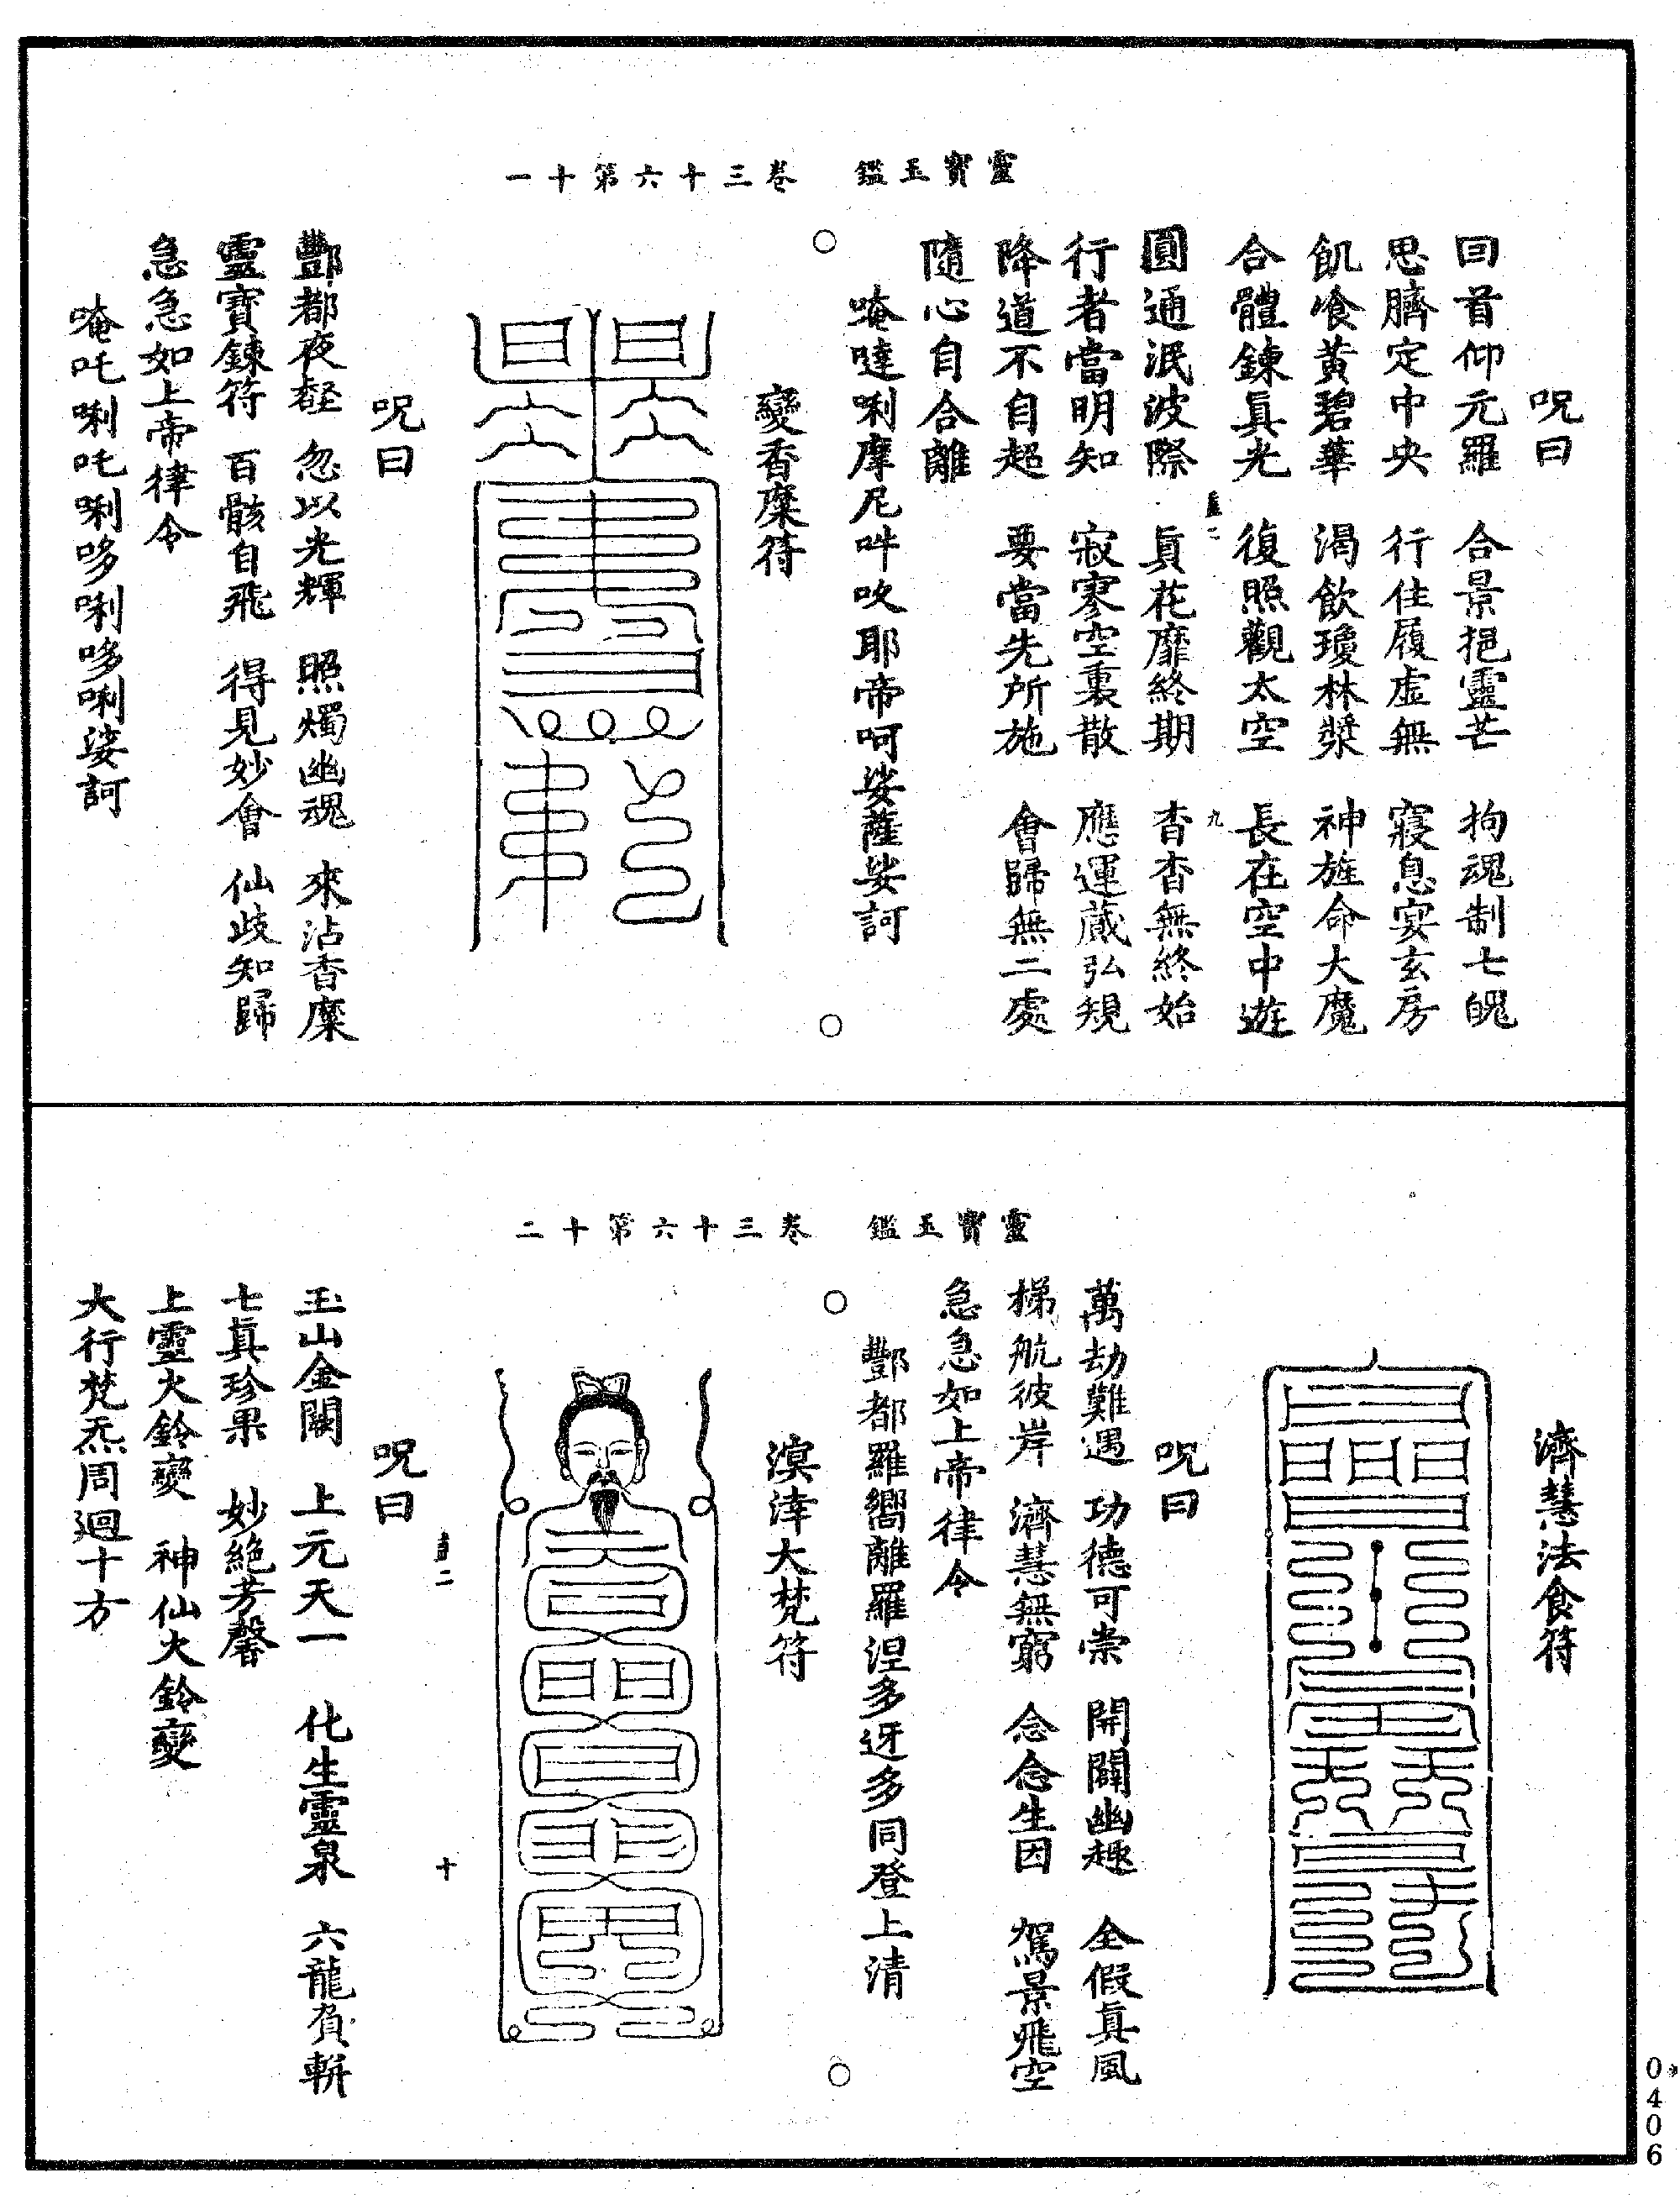 靈寶玉鑑　卷三十六第十一
呪曰
回首仰元羅　合景挹靈芒　拘魂制七魄
思臍定中央　行住履虛無　寢息宴玄房
飢飡黃碧華　渴飲瓊林漿　神旌命大魔
合體鍊眞光　復照觀太空　長在空中遊
二　九
圓通泯波際　眞花靡終期　杳杳無終始
行者當明知　寂寥空裏散　應運蔵弘規
降道不自超　要當先所施　會歸無二處
隨心自合離
唵噠唎摩尼吽㕮耶帝呵娑薩娑訶
變香糜符
呪曰
酆都夜壑　忽以光輝　照燭幽魂　來沾香糜
靈寶鍊符　百骸自飛　得見妙會　仙歧知歸
急急如上帝律令
唵吒唎吒唎哆唎哆唎娑訶
靈寶玉鑑　卷三十六第十二
濟慧法食符
呪曰
萬劫難遇　功德可崇　開闢幽趣　全假眞風
梯航彼岸　濟慧無窮　念念生因　駕景飛空
急急如上帝律令
酆都羅嚮離羅涅多迓多同登上清
溟涬大梵符
二　十
呪曰
玉山金闕　上元天一　化生靈泉　六龍負輧
七眞珍果　妙絶芳馨
上靈火鈴變　神仙火鈴變
大行梵炁周迴十方
0406